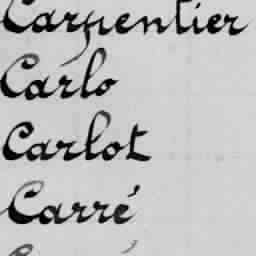 Carpentier
Carlo
Carlot
Carré